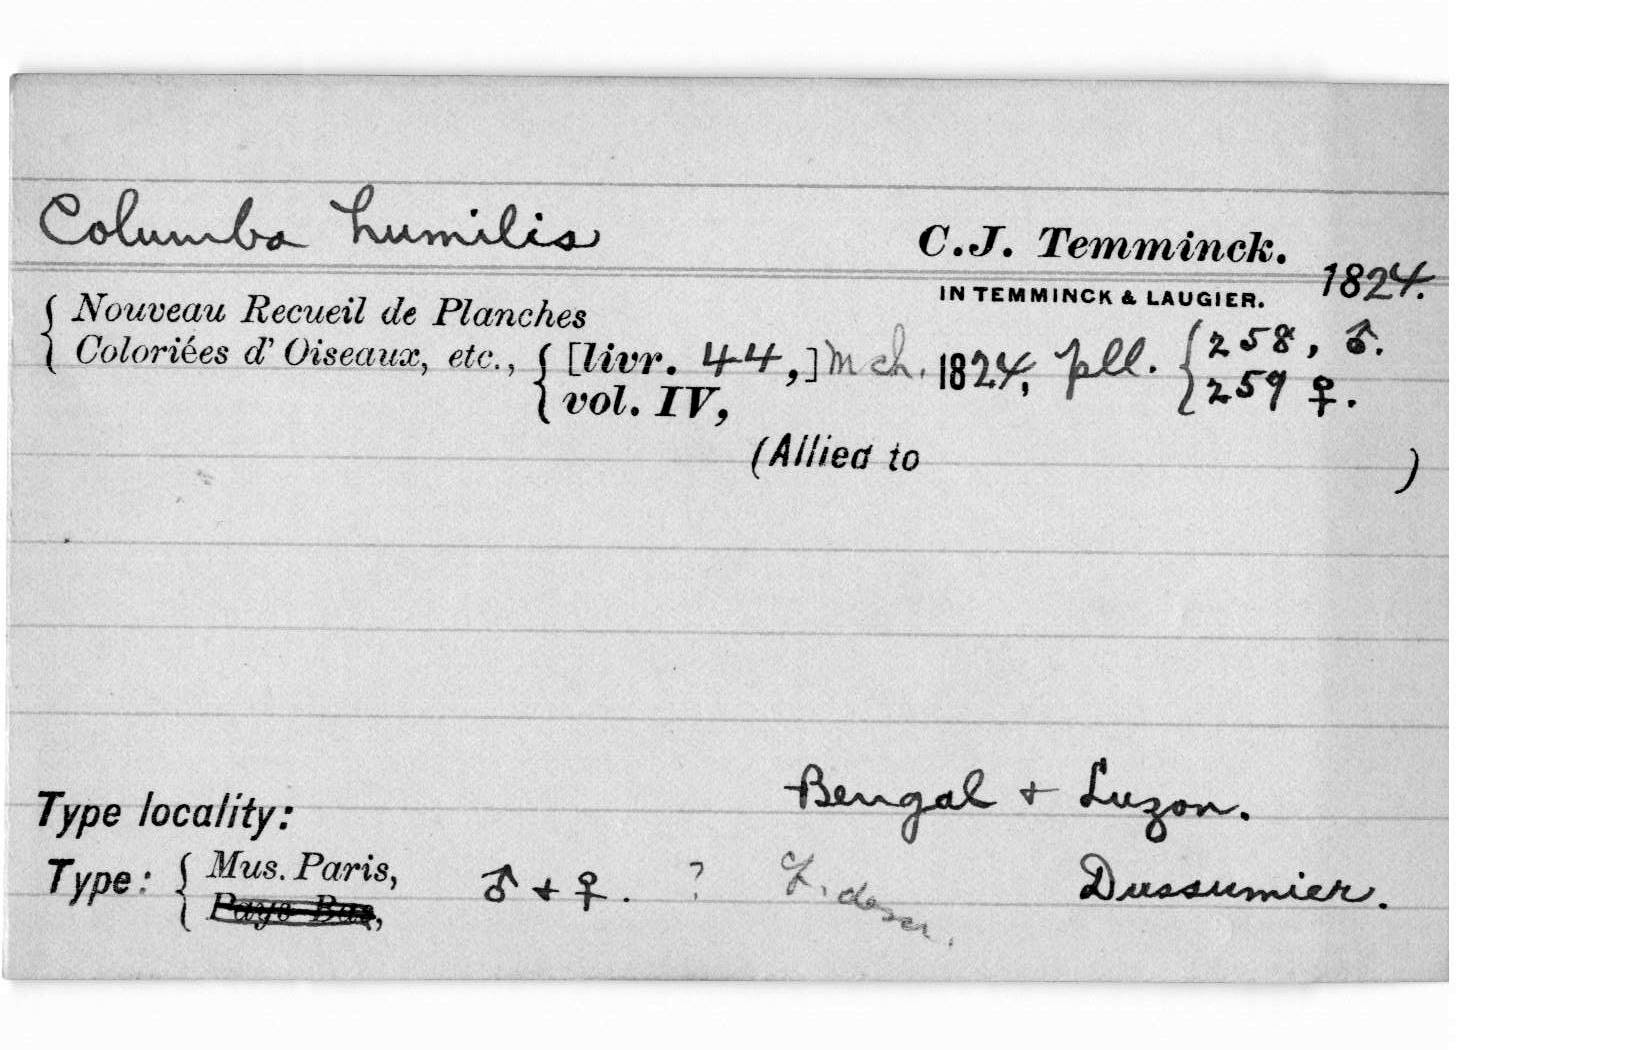 Columba humilis
C.J. Temminck.
IN TEMMINCK & LAUGIER. 1824.
{ Nouveau Recueil de Planches
{ Coloriées d' Oiseaux, etc., { [livr. 44,] Mch. 1824, pll. { 258, ♂.
{ vol. IV, { 259 ♀.
(Allied to )
Type locality: Bengal + Luzon.
Type: { Mus. Paris, ♂ + ♀. ? Dussumier.
{ Pays Bas,